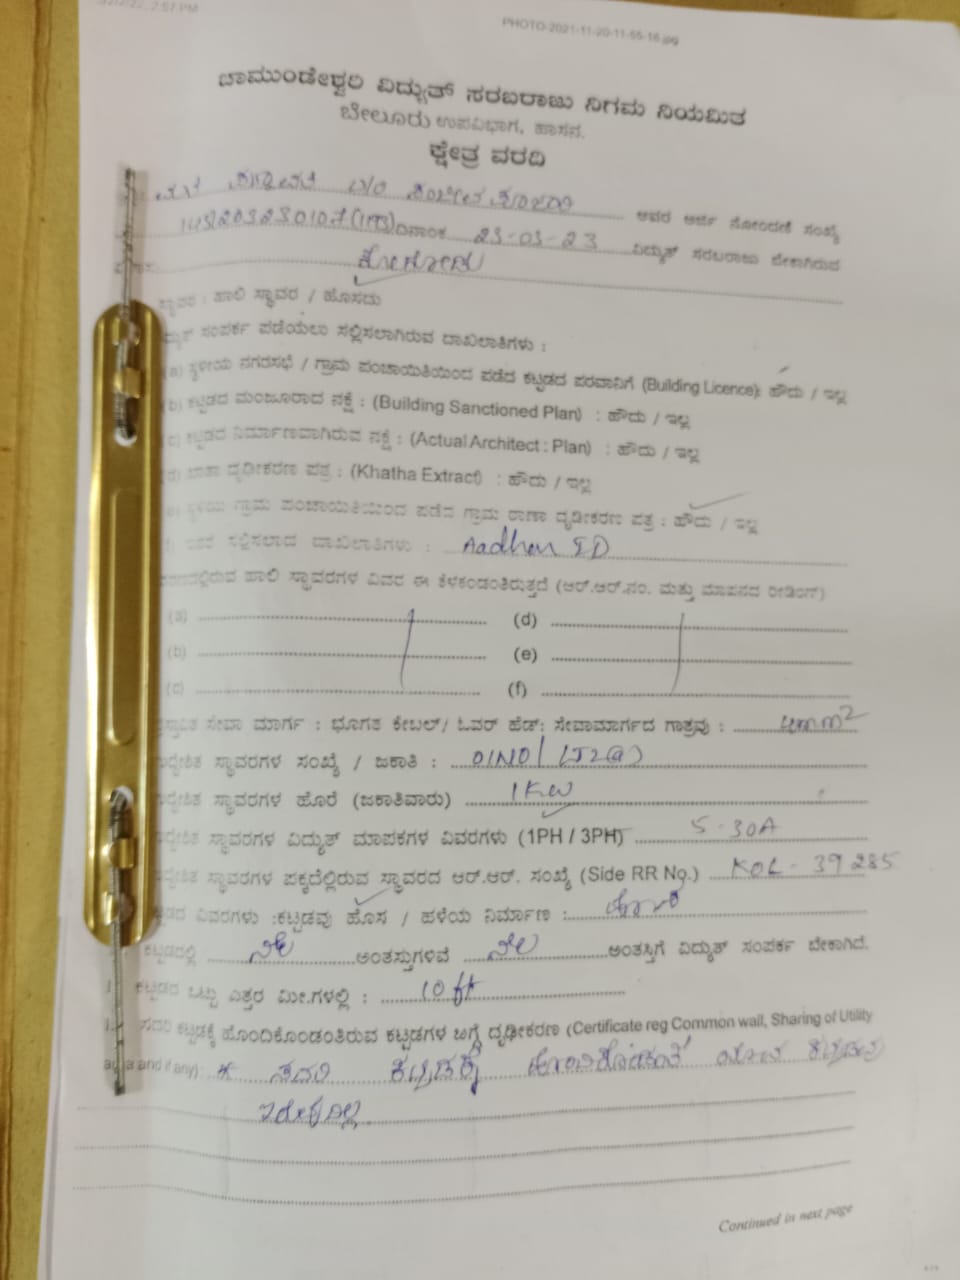 2:57 PM
PHOTO-2021-11-20-11-55-16.jpg
ಚಾಮುಂಡೇಶ್ವರಿ ವಿದ್ಯುತ್ ಸರಬರಾಜು ನಿಗಮ ನಿಯಮಿತ
ಬೇಲೂರು ಉಪವಿಭಾಗ, ಹಾಸನ.
ಕ್ಷೇತ್ರ ವರದಿ
ಅವರ ಅರ್ಜಿ ನೋಂದಣಿ ಸಂಖ್ಯೆ
ದಿನಾಂಕ 23-03-23 ವಿದ್ಯುತ್ ಸರಬರಾಜು ಬೇಕಾಗಿರುವ
ಸ್ಥಾವರ : ಹಾಲಿ ಸ್ಥಾವರ / ಹೊಸದು
ಸಂಪರ್ಕ ಪಡೆಯಲು ಸಲ್ಲಿಸಲಾಗಿರುವ ದಾಖಲಾತಿಗಳು :
(a) ಸ್ಥಳೀಯ ನಗರಸಭೆ / ಗ್ರಾಮ ಪಂಚಾಯಿತಿಯಿಂದ ಪಡೆದ ಕಟ್ಟಡದ ಪರವಾನಿಗೆ (Building Licence): ಹೌದು / ಇಲ್ಲ
(b) ಕಟ್ಟಡದ ಮಂಜೂರಾದ ನಕ್ಷೆ : (Building Sanctioned Plan) : ಹೌದು / ಇಲ್ಲ
(c) ಕಟ್ಟಡದ ನಿರ್ಮಾಣವಾಗಿರುವ ನಕ್ಷೆ : (Actual Architect : Plan) : ಹೌದು / ಇಲ್ಲ
(d) ಖಾತಾ ದೃಢೀಕರಣ ಪತ್ರ : (Khatha Extract) : ಹೌದು / ಇಲ್ಲ
ಗ್ರಾಮ ಪಂಚಾಯಿತಿಯಿಂದ ಪಡೆದ ಗ್ರಾಮ ಠಾಣಾ ದೃಢೀಕರಣ ಪತ್ರ : ಹೌದು / ಇಲ್ಲ
ಸಲ್ಲಿಸಲಾದ ದಾಖಲಾತಿಗಳು : Aadhar ID
ಹಾಲಿ ಸ್ಥಾವರಗಳ ವಿವರ ಈ ಕೆಳಕಂಡಂತಿರುತ್ತದೆ (ಆರ್.ಆರ್.ನಂ. ಮತ್ತು ಮಾಪನದ ರೀಡಿಂಗ್)
(a) (d)
(b) (e)
(c) (f)
ಸೇವಾ ಮಾರ್ಗ : ಭೂಗತ ಕೇಬಲ್/ ಓವರ್ ಹೆಡ್: ಸೇವಾಮಾರ್ಗದ ಗಾತ್ರವು : 4mm2
ಸ್ಥಾವರಗಳ ಸಂಖ್ಯೆ / ಜಕಾತಿ : 01NO/
ಸ್ಥಾವರಗಳ ಹೊರೆ (ಜಕಾತಿವಾರು) 1KW
ಸ್ಥಾವರಗಳ ವಿದ್ಯುತ್ ಮಾಪಕಗಳ ವಿವರಗಳು (1PH / 3PH) 5-30A
ಸ್ಥಾವರಗಳ ಪಕ್ಕದಲ್ಲಿರುವ ಸ್ಥಾವರದ ಆರ್.ಆರ್. ಸಂಖ್ಯೆ (Side RR No.) KOL-39285
ವಿವರಗಳು :ಕಟ್ಟಡವು ಹೊಸ / ಹಳೆಯ ನಿರ್ಮಾಣ :
ಕಟ್ಟಡದಲ್ಲಿ ನೆಲ ಅಂತಸ್ತುಗಳಿವೆ ನೆಲ ಅಂತಸ್ತಿಗೆ ವಿದ್ಯುತ್ ಸಂಪರ್ಕ ಬೇಕಾಗಿದೆ.
ಕಟ್ಟಡದ ಒಟ್ಟು ಎತ್ತರ ಮೀ.ಗಳಲ್ಲಿ : 10 ft
ಸದರಿ ಕಟ್ಟಡಕ್ಕೆ ಹೊಂದಿಕೊಂಡಂತಿರುವ ಕಟ್ಟಡಗಳ ಬಗ್ಗೆ ದೃಢೀಕರಣ (Certificate reg Common wall, Sharing of Utility
and if any) : ಸದರಿ ಕಟ್ಟಡಕ್ಕೆ ಹೊಂದಿಕೊಂಡಂತೆ ಯಾವ ಕಟ್ಟಡವು
ಇರುವುದಿಲ್ಲ.
Continued in next page